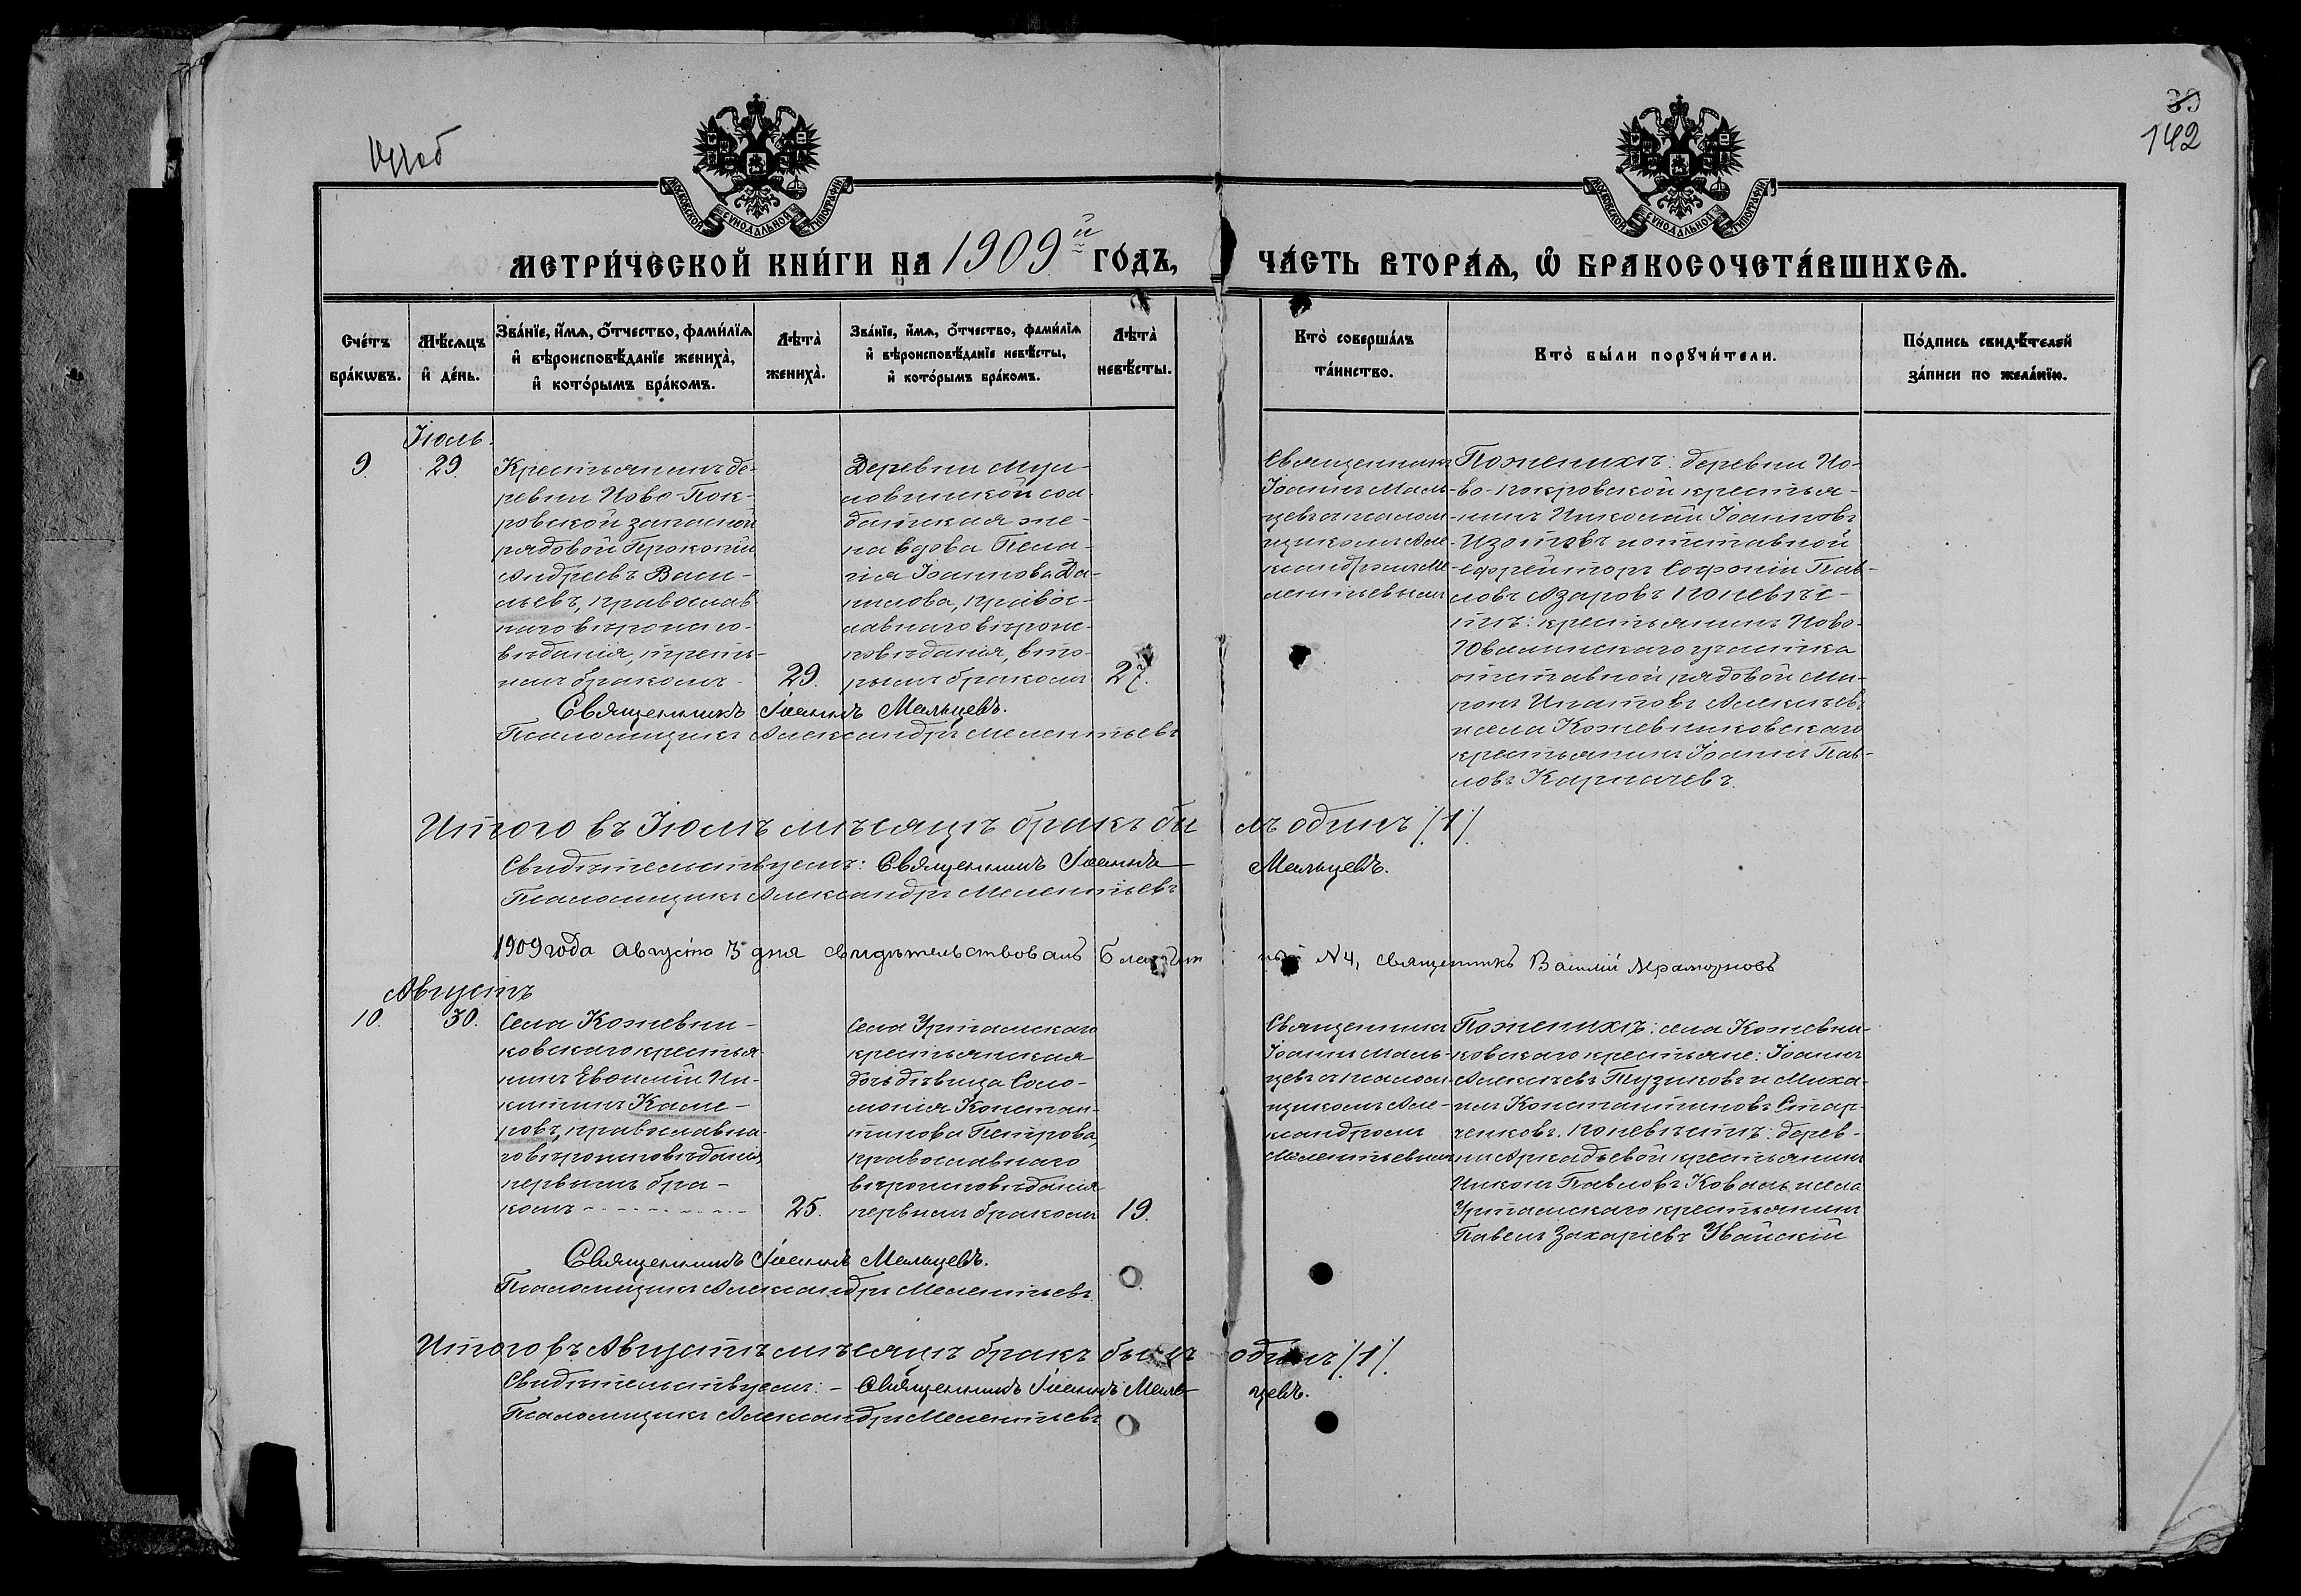 39
142
МОСКОВСКОЙ СѴНОДАЛЬНОЙ ТИПОГРАФІИ
МОСКОВСКОЙ СѴНОДАЛЬНОЙ ТИПОГРАФІИ
МЕТРИ́ЧЕСКОЙ КНИ́ГИ НА 1909й ГО́ДЪ,
ЧА́СТЬ ВТОРА́Ѧ, Ѡ҆ БРАКОСОЧЕТА́ВШИХСѦ.
Сче́тъ бра́кѡвъ.
Мѣ́сѧцъ и҆ де́нь.
Зва́нїе, и҆́мѧ, ѻ҆́тчество, фами́лїѧ
и҆ вѣроисповѣ́данїе женихà,
и҆ кото́рымъ бра́комъ.
Лѣ́тà женихà.
Зва́нїе, и҆́мѧ, ѻ҆́тчество, фами́лїѧ
и҆ вѣроисповѣ́данїе невѣ́сты,
и҆ кото́рымъ бра́комъ.
Лѣ́тà невѣ́сты.
Кто̀ соверша́лъ
та́инство.
Кто̀ бы́ли порꙋчи́тели.
По́дпись свидѣ́телей
за́писи по жела́нїю.
Іюль.
9.
29.
Крестьянинъ де-
ревни Ново-Пок-
ровской запасной
рядовой Прокопій
Андреевъ Васи-
льевъ, православ-
наго вѣроиспо-
вѣданія, треть-
имъ бракомъ
29.
Деревни
ловинской сол-
датская же-
на вдова Пела-
гія Іоаннова Да-
нилова, правос-
лавнаго вѣроис-
повѣданія, вто-
рымъ бракомъ
27.
Священникъ
Іоаннъ Маль-
цевъ съ псалом-
щикомъ Але-
ксандромъ Ме-
лентьевымъ
По женихѣ: деревни Но-
во-покровской крестья-
нинъ Николай Іоанновъ
Изотовъ и отставной
ефрейторъ Софоній Пав-
ловъ Азаровъ по невѣс-
тѣ: крестьянинъ Ново-
Ювалинскаго участка
отставной рядовой Ми-
ронъ Игнатовъ Алексѣевъ
и села Кожевниковскаго
крестьянинъ Іоаннъ Пав-
ловъ Карпачевъ.
Священникъ Іоаннъ Мальцевъ.
Псаломщикъ Александръ Мелентьевъ
Итого въ Іюлѣ мѣсяцѣ бракъ бы лъ одинъ /1/.
Свидѣтельствуемъ: Священникъ Іоаннъ Мальцевъ.
Псаломщикъ Александръ Мелентьевъ
1909 года августа 13 дня свидѣтельствовалъ Благочин ный №4, священникъ Василій Мраморновъ
Августъ
10.
30.
Села Кожевни-
ковскаго крестья-
нинъ Евѳимій Ни-
китинъ Касте-
ровъ, православна-
го вѣроисповѣданія,
первымъ бра-
комъ
25.
Села Уртамскаго
крестьянская
дочь дѣвица Соло-
монія Констан-
тинова Петрова,
православнаго
вѣроисповѣданія
первымъ бракомъ
19.
Священникъ
Іоаннъ Маль-
цевъ съ псалом-
щикомъ Але-
ксандромъ
Мелентьевымъ
По женихѣ: села Кожевни-
ковскаго крестьяне: Іоаннъ
Алексѣевъ Тузиковъ и Миха-
илъ Константиновъ Стар-
ченковъ. по невѣстѣ: дерев-
ни Аркадьевой крестьянинъ
Никонъ Павловъ Коваль и села
Уртамскаго крестьянинъ
Павелъ Захаріевъ Увайскій
Священникъ Іоаннъ Мальцевъ.
Псаломщикъ Александръ Мелентьевъ.
Итого въ Августѣ мѣсяцѣ бракъ былъ одинъ /1/.
Свидѣтельствуемъ: - Священникъ Іоаннъ Маль- цевъ.
Псаломщикъ Александръ Мелентьевъ